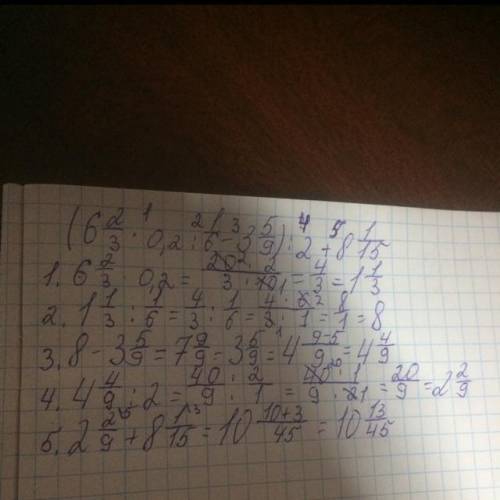 (6 2/3 · 0,2 : 1/6 - 3 5/9) : 2 + 8 1/15
1. 6 2/3 · 0,2 = 20 · 2 / 3 · 10 = 4/3 = 1 1/3
2. 1 1/3 : 1/6 = 4/3 : 1/6 = 4 · 6 / 3 · 1 = 8/1 = 8
3. 8 - 3 5/9 = 7 9/9 - 3 5/9 = 4 9-5/9 = 4 4/9
4. 4 4/9 : 2 = 40/9 : 2/1 = 40 · 1 / 9 · 2 = 20/9 = 2 2/9
5. 2 2/9 + 8 1/15 = 10 10+3/45 = 10 13/45